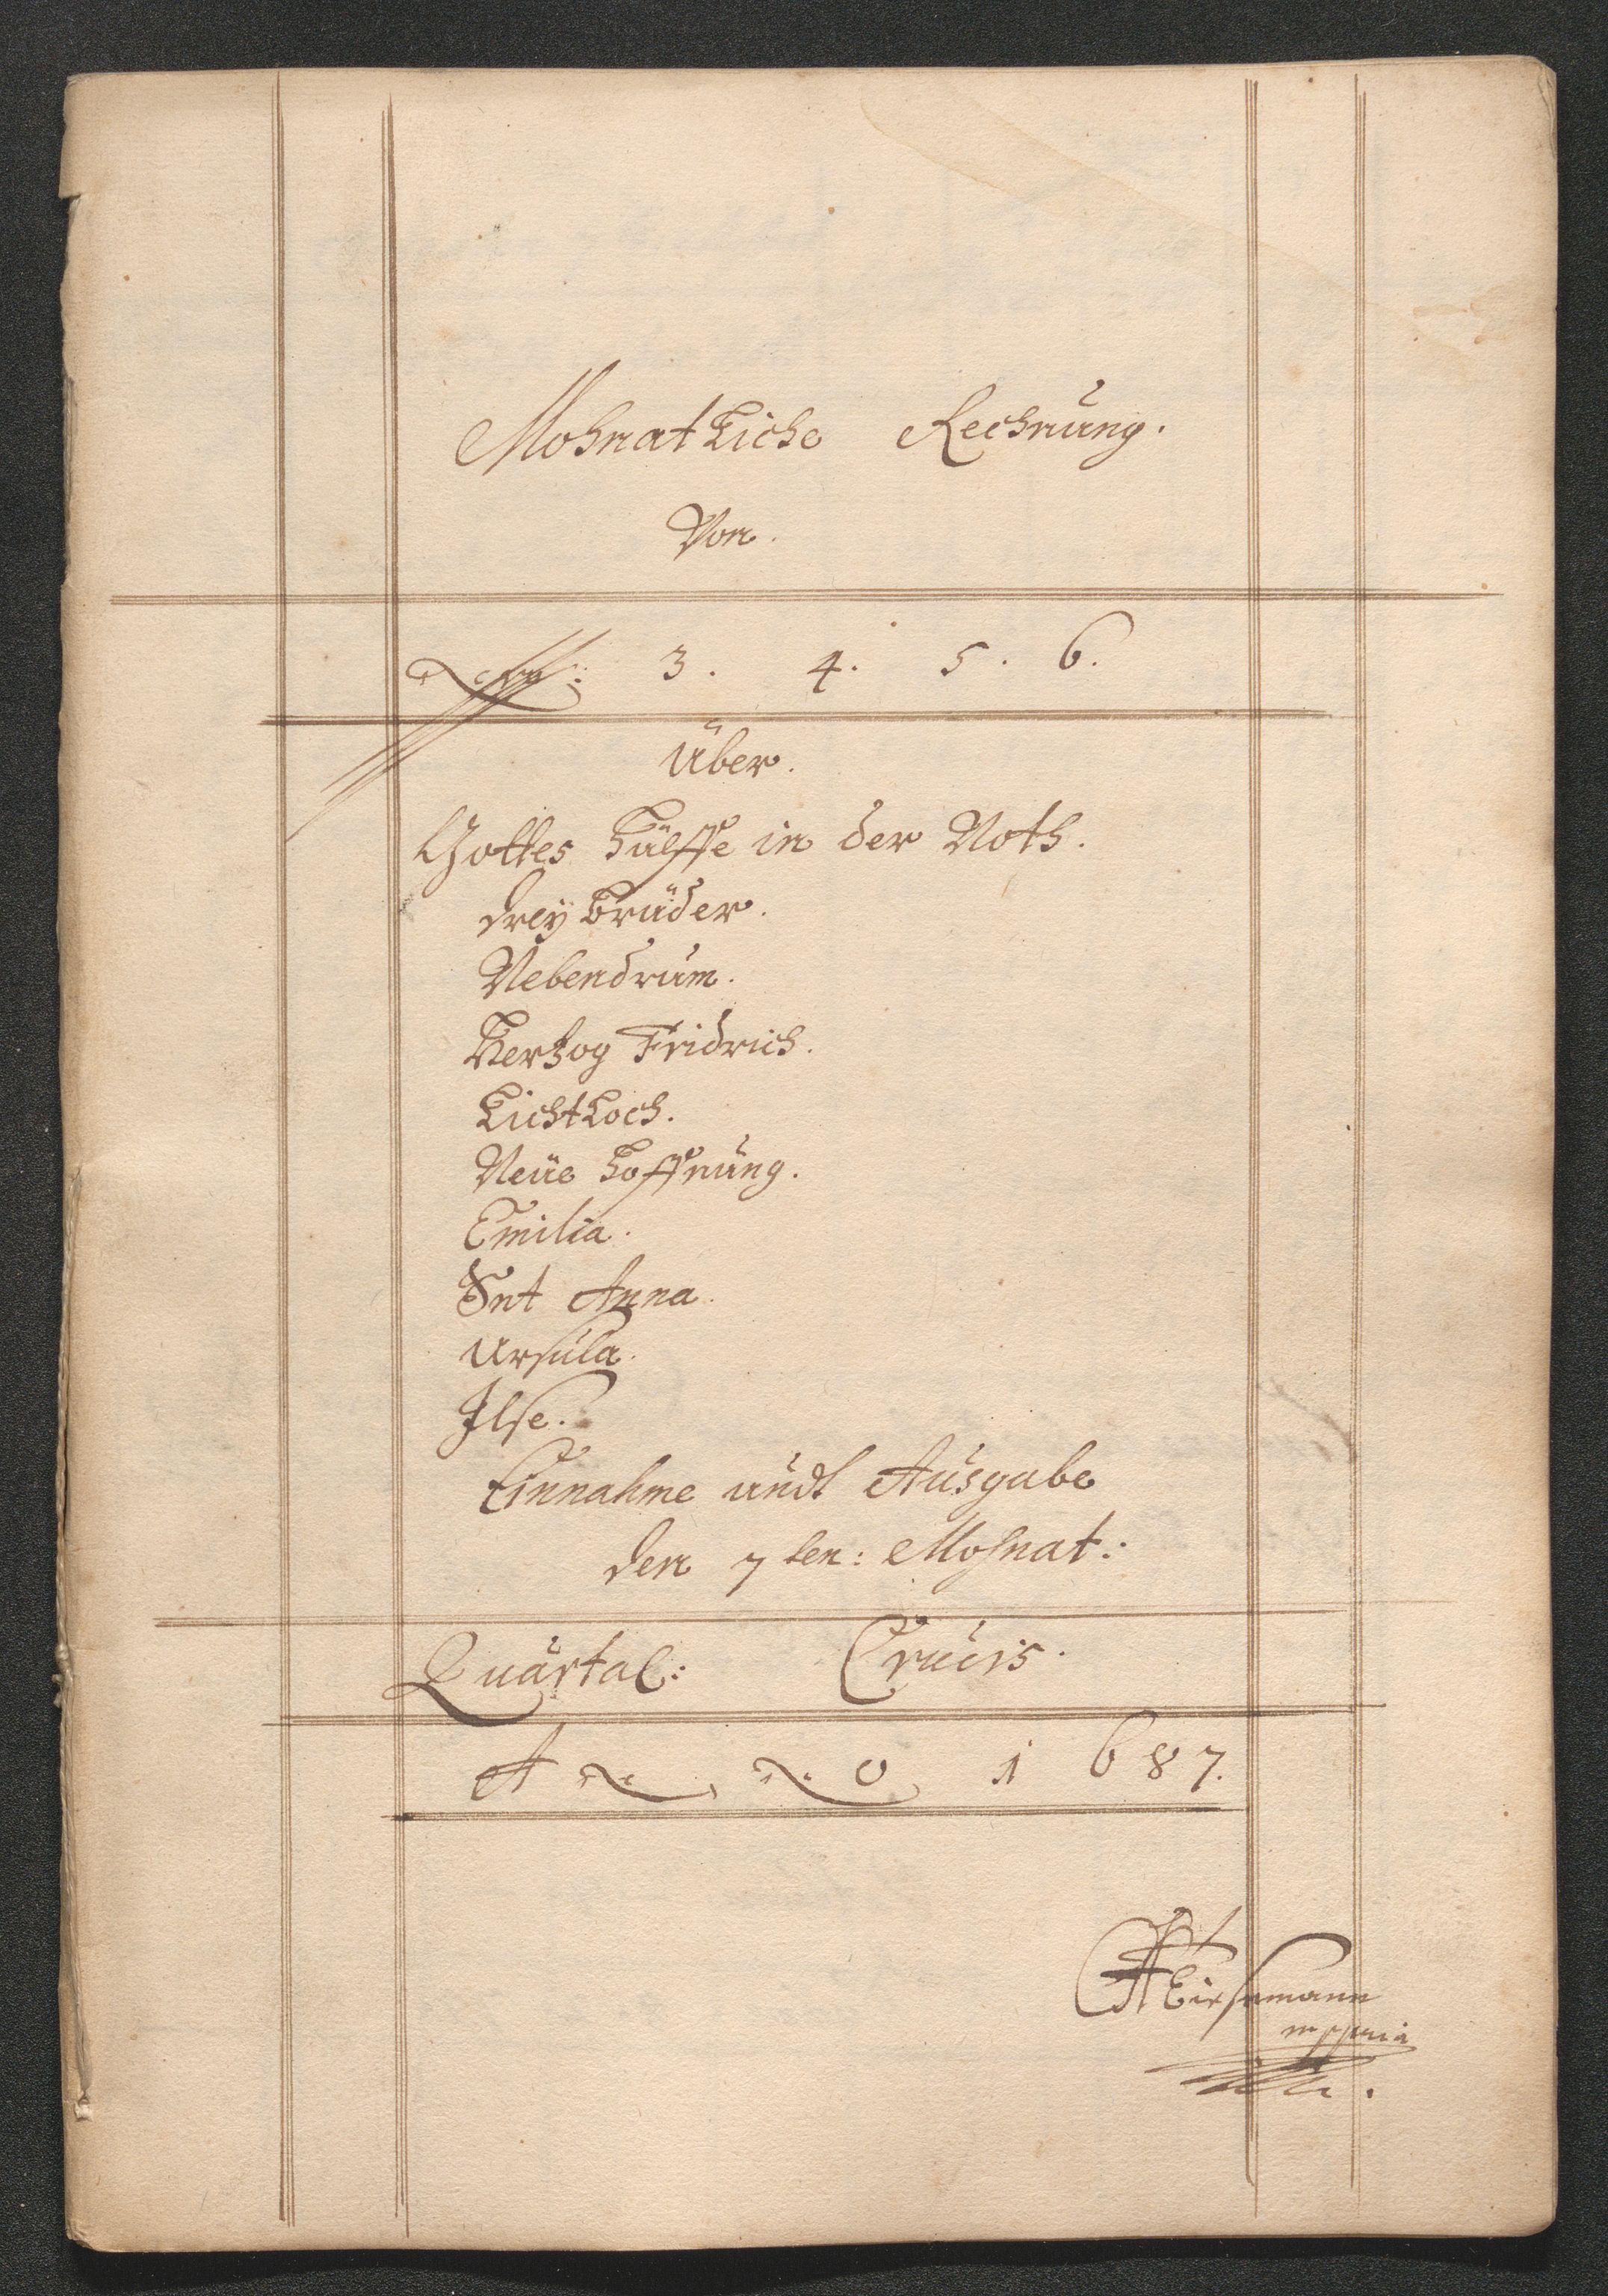 Mohnatliche Rechnung.
Von.
3. 4. 5. 6.
Über.
Gottes hülffe in der Noth.
drey brüder.
Nebendrum.
Hertzog Fridrich.
Lichtloch.
Neüe hoffnung.
Emilia.
Snt Anna.
Ursula.
Ilse.
Einnahme undt Ausgabe
den 7 ten: Mohnat:
Quartal: Crucis.
Anno 1687.
mppria